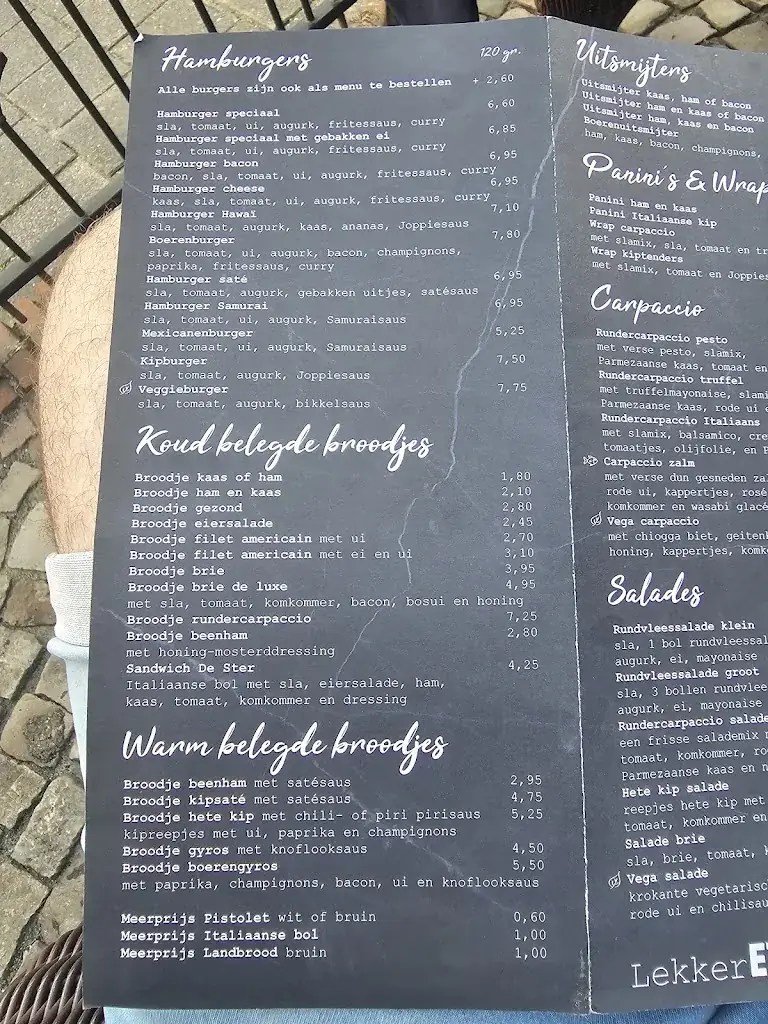 Hamburgers 120 gr.
Alle burgers zijn ook als menu te bestellen + 2,60
Hamburger speciaal 6,60
sla, tomaat, ui, augurk, fritessaus, curry
Hamburger speciaal met gebakken ei 6,85
sla, tomaat, ui, augurk, fritessaus, curry
Hamburger bacon 6,95
bacon, sla, tomaat, ui, augurk, fritessaus, curry
Hamburger cheese 6,95
kaas, sla, tomaat, ui, augurk, fritessaus, curry
Hamburger Hawaï 7,10
sla, tomaat, augurk, kaas, ananas, Joppiesaus
Boerenburger 7,80
sla, tomaat, ui, augurk, bacon, champignons,
paprika, fritessaus, curry
Hamburger saté 6,95
sla, tomaat, augurk, gebakken uitjes, satésaus
Hamburger Samurai 6,95
sla, tomaat, ui, augurk, Samuraisaus
Mexicanenburger 5,25
sla, tomaat, ui, augurk, Samuraisaus
Kipburger 7,50
sla, tomaat, augurk, Joppiesaus
Veggieburger 7,75
sla, tomaat, augurk, bikkelsaus
Koud belegde broodjes
Broodje kaas of ham 1,80
Broodje ham en kaas 2,10
Broodje gezond 2,80
Broodje eiersalade 2,45
Broodje filet americain met ui 2,70
Broodje filet americain met ei en ui 3,10
Broodje brie 3,95
Broodje brie de luxe 4,95
met sla, tomaat, komkommer, bacon, bosui en honing
Broodje rundercarpaccio 7,25
Broodje beenham 2,80
met honing-mosterddressing
Sandwich De Ster 4,25
Italiaanse bol met sla, eiersalade, ham,
kaas, tomaat, komkommer en dressing
Warm belegde broodjes
Broodje beenham met satésaus 2,95
Broodje kipsaté met satésaus 4,75
Broodje hete kip met chili- of piri pirisaus 5,25
kipreepjes met ui, paprika en champignons
Broodje gyros met knoflooksaus 4,50
Broodje boerengyros 5,50
met paprika, champignons, bacon, ui en knoflooksaus
Meerprijs Pistolet wit of bruin 0,60
Meerprijs Italiaanse bol 1,00
Meerprijs Landbrood bruin 1,00
Uitsmijters
Uitsmijter kaas, ham of bacon
Uitsmijter ham en kaas of bacon
Uitsmijter ham, kaas en bacon
Boerenuitsmijter
ham, kaas, bacon, champignons,
Panini's & Wrap
Panini ham en kaas
Panini Italiaanse kip
Wrap carpaccio
met slamix, sla, tomaat en
Wrap kiptenders
met slamix, tomaat en Joppies
Carpaccio
Rundercarpaccio pesto
met verse pesto, slamix,
Parmezaanse kaas, tomaat en
Rundercarpaccio truffel
met truffelmayonaise, slami
Parmezaanse kaas, rode ui e
Rundercarpaccio Italiaans
met slamix, balsamico, cre
tomaatjes, olijfolie, en P
Carpaccio zalm
met verse dun gesneden za
rode ui, kappertjes, rosé
komkommer en wasabi glacé
Vega carpaccio
met chiogga biet, geiten
honing, kappertjes, komk
Salades
Rundvleessalade klein
sla, 1 bol rundvleessal
augurk, ei, mayonaise
Rundvleessalade groot
sla, 3 bollen rundvlee
augurk, ei, mayonaise
Rundercarpaccio salade
een frisse salademix
tomaat, komkommer, ro
Parmezaanse kaas en
Hete kip salade
reepjes hete kip met
tomaat, komkommer en
Salade brie
sla, brie, tomaat,
Vega salade
krokante vegetarisc
rode ui en chilisau
LekkerE